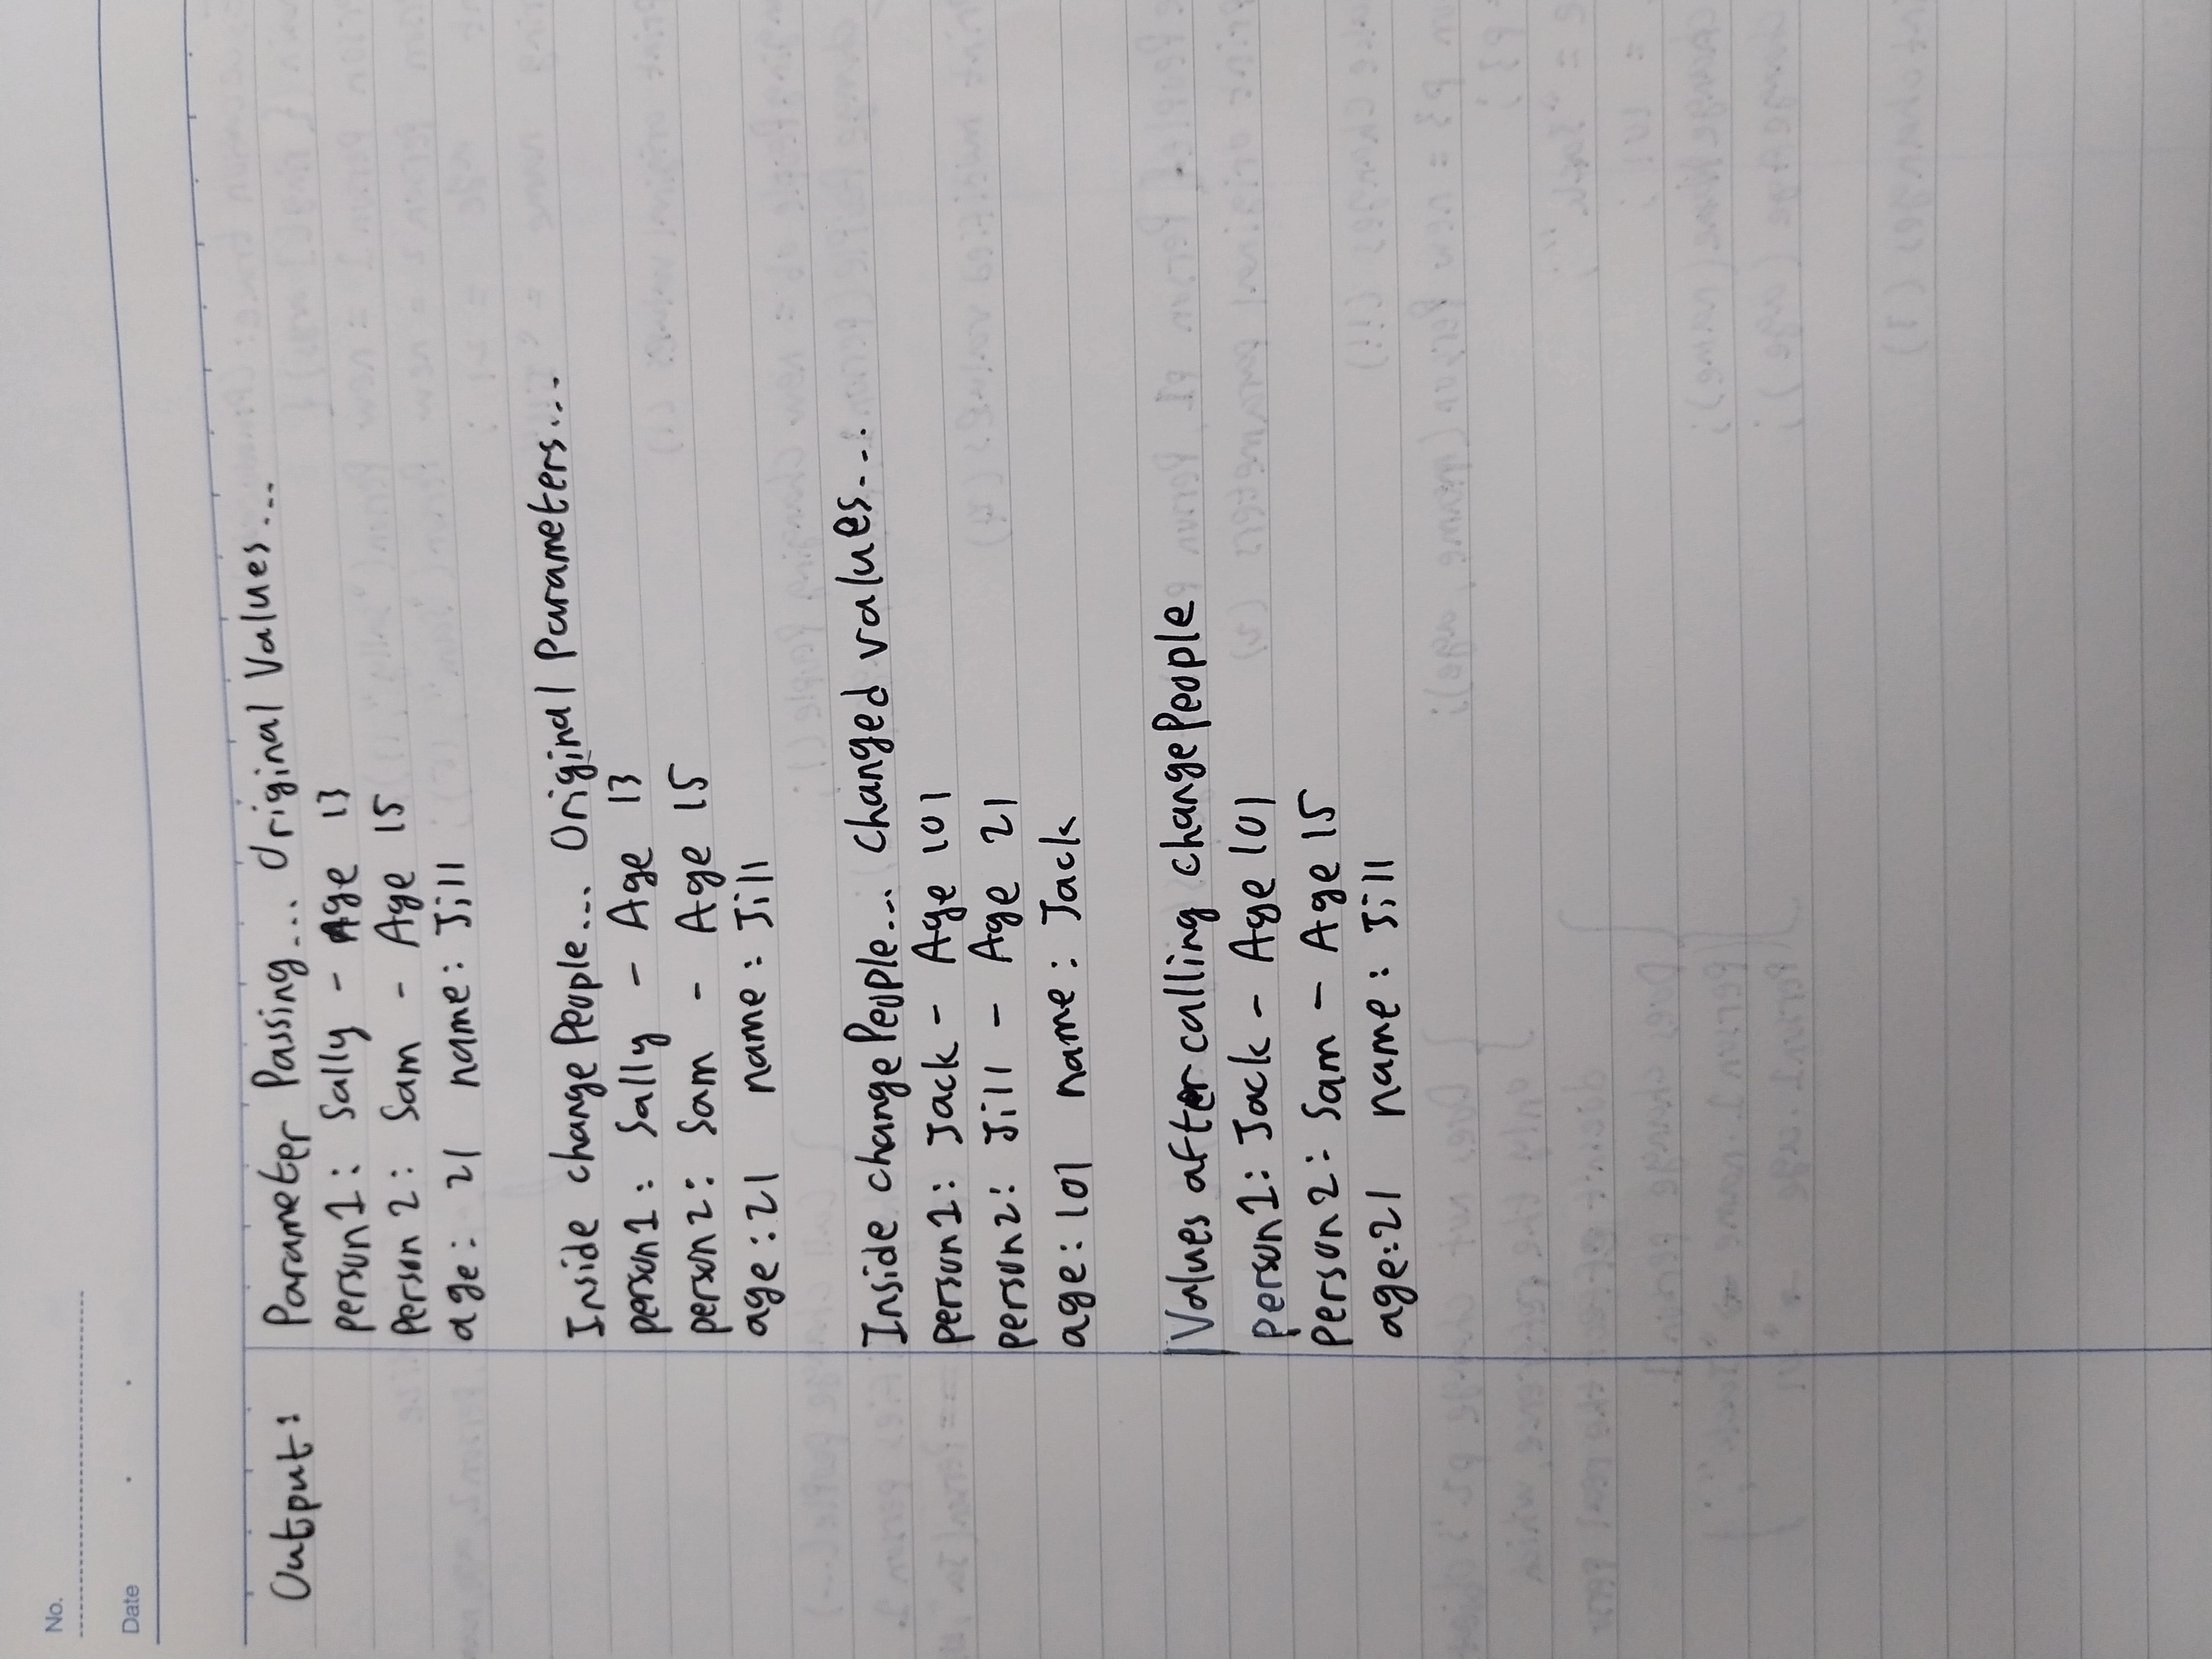 No.
Date
Output: Parameter Passing... Original Values...
person1: Sally - Age 13
Person 2: Sam - Age 15
age: 21 name: Jill
Inside changePeople... Original Parameters...
person1: Sally - Age 13
person2: Sam - Age 15
age:21 name: Jill
Inside changePeople... changed values...
person1: Jack - Age 101
person2: Jill - Age 21
age: 101 name: Jack
Values after calling changePeople
person1: Jack - Age 101
person2: Sam - Age 15
age:21 name: Jill